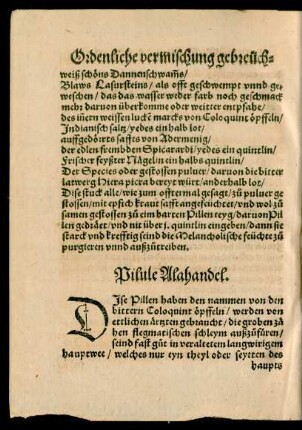 Ordenliche vermischung gebreüch-
weiß schöns Dannenschwam̃s/
Blaws Lasursteins/ als offt geschwempt vnnd ge-
weschen/ das das wasser weder farb noch geschmack
mehr daruon überkomme oder weitter entpfahe/
des iñern weissen luckē marcks von Coloquint öpffeln/
Indianisch saltz/ yedes ein halb lot/
auffgedörts saffts von Adermenig/
der edlen frembden Spicanardi/ yedes ein quintlin/
Frischer feyßter Nägelin ein halbs quintlin/
Der Species oder gestossen puluer/ daruon die bitter
latwerg Hiera picra bereyt würt/ anderhalb lot/
Dise stuck alle/ wie zum offtermal gesagt/ zů puluer ge
stossen/ mit epfich kraut safft angefeüchtet/ vnd wol zů
samen gestossen zů eim harten Pillen teyg/ daruon Pil-
len gedräet/ vnd nit über j. quintlin eingeben/ dann sie
starck vnd krefftig seind die Melancholische feüchte zů
purgieren vnnd außzůtreiben.
Pilule Alahandel.
DIse Pillen haben den nammen von den
bittern Coloquint öpffeln/ werden von
ettlichen ärtzten gebraucht/ die groben zä
hen flegmatischen schleym außzůfüren/
seind fast gůt in veraltetem langwirigem
hauptwee/ welches nur eyn theyl oder seytten des
haupts